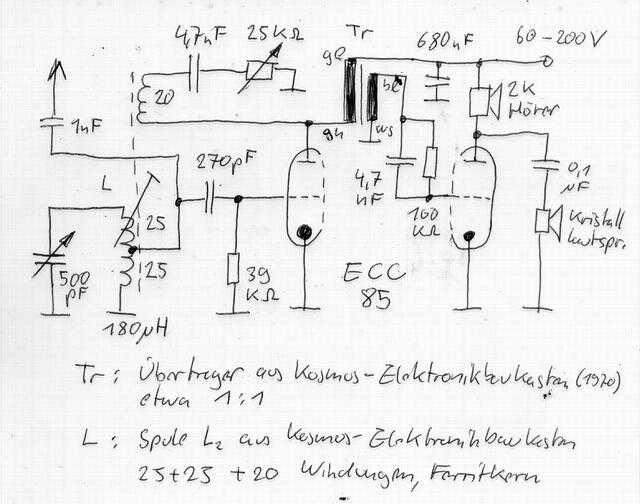 4,7nF 25KΩ Tr 680nF 60-200V
ge
20 be 2K
Hörer
1nF gn ws
270pF
L 4,7 nF 0,1 µF
25 100 KΩ Kristall
lautspr.
25 39 KΩ ECC
500 pF 85
180µH
Tr: Übertrager aus Kosmos-Elektronikbaukasten (1970)
etwa 1:1
L: Spule L2 aus Kosmos-Elektronikbaukasten
25+25 +20 Windungen, Ferritkern